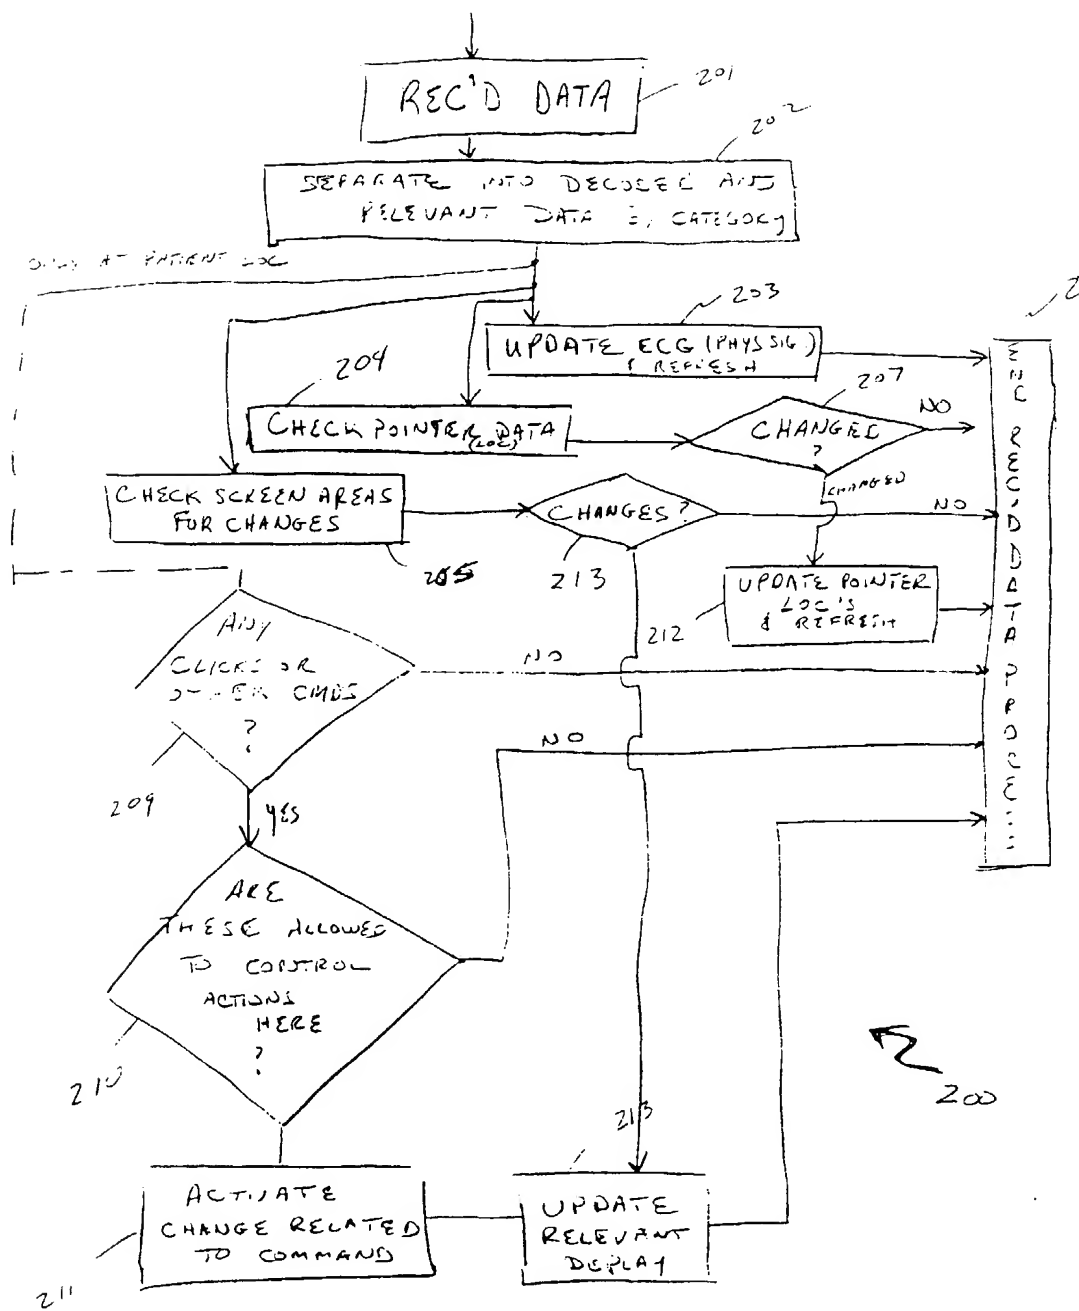 REC'D DATA
201
202
SEPARATE INTO DECODED AND
RELEVANT DATA BY CATEGORY
ONLY AT PATIENT LOC
203
2
UPDATE ECG (PHYS SIG.)
& REFRESH
204
207
CHECK POINTER DATA
(LOC)
CHANGED
?
NO
CHANGED
CHECK SCREEN AREAS
FOR CHANGES
CHANGES?
NO
205
213
UPDATE POINTER
LOC'S
& REFRESH
212
END REC'D DATA PROCE
ANY
CLICKS OR
OTHER CMDS
?
NO
209
YES
NO
ARE
THESE ALLOWED
TO CONTROL
ACTIONS
HERE
?
210
200
213
ACTIVATE
CHANGE RELATED
TO COMMAND
UPDATE
RELEVANT
DISPLAY
211